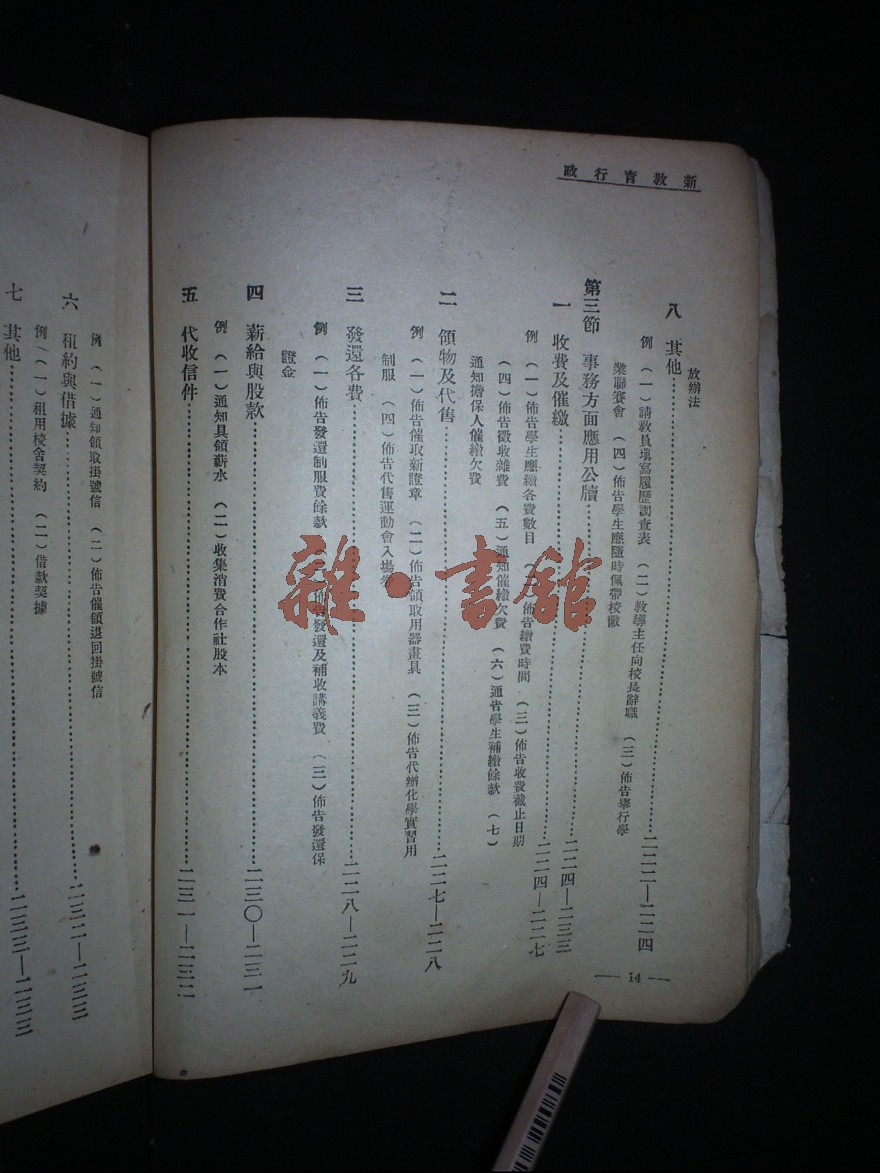 新教育行政
放辦法
八 其他……二二二—二二四
例 （一）請教員填寫履歷調查表 （二）教導主任向校長辭職 （三）佈告舉行學
業聯賽會 （四）佈告學生應隨時佩帶校徽
第三節 事務方面應用公牘……二二四—二三三
一 收費及催繳……二二四—二二七
例 （一）佈告學生應繳各費數目 （二）佈告繳費時間 （三）佈告收費截止日期
（四）佈告徵收雜費 （五）通知催繳欠費 （六）通告學生補繳餘款 （七）
通知擔保人催繳欠費
二 領物及代售……二二七—二二八
例 （一）佈告催取新證章 （二）佈告領取用器畫具 （三）佈告代辦化學實習用
制服 （四）佈告代售運動會入場券
三 發還各費……二二八—二二九
例 （一）佈告發還制服費餘款 （二）佈告發還及補收講義費 （三）佈告發還保
證金
四 薪給與股款……二三〇—二三一
例 （一）通知具領薪水 （二）收集消費合作社股本
五 代收信件……二三一—二三二
14
例 （一）通知領取掛號信 （二）佈告催領退回掛號信
六 租約與借據……二三二—二三三
例 （一）租用校舍契約 （二）借款契據
七 其他……二三三—二三三
雜·書館